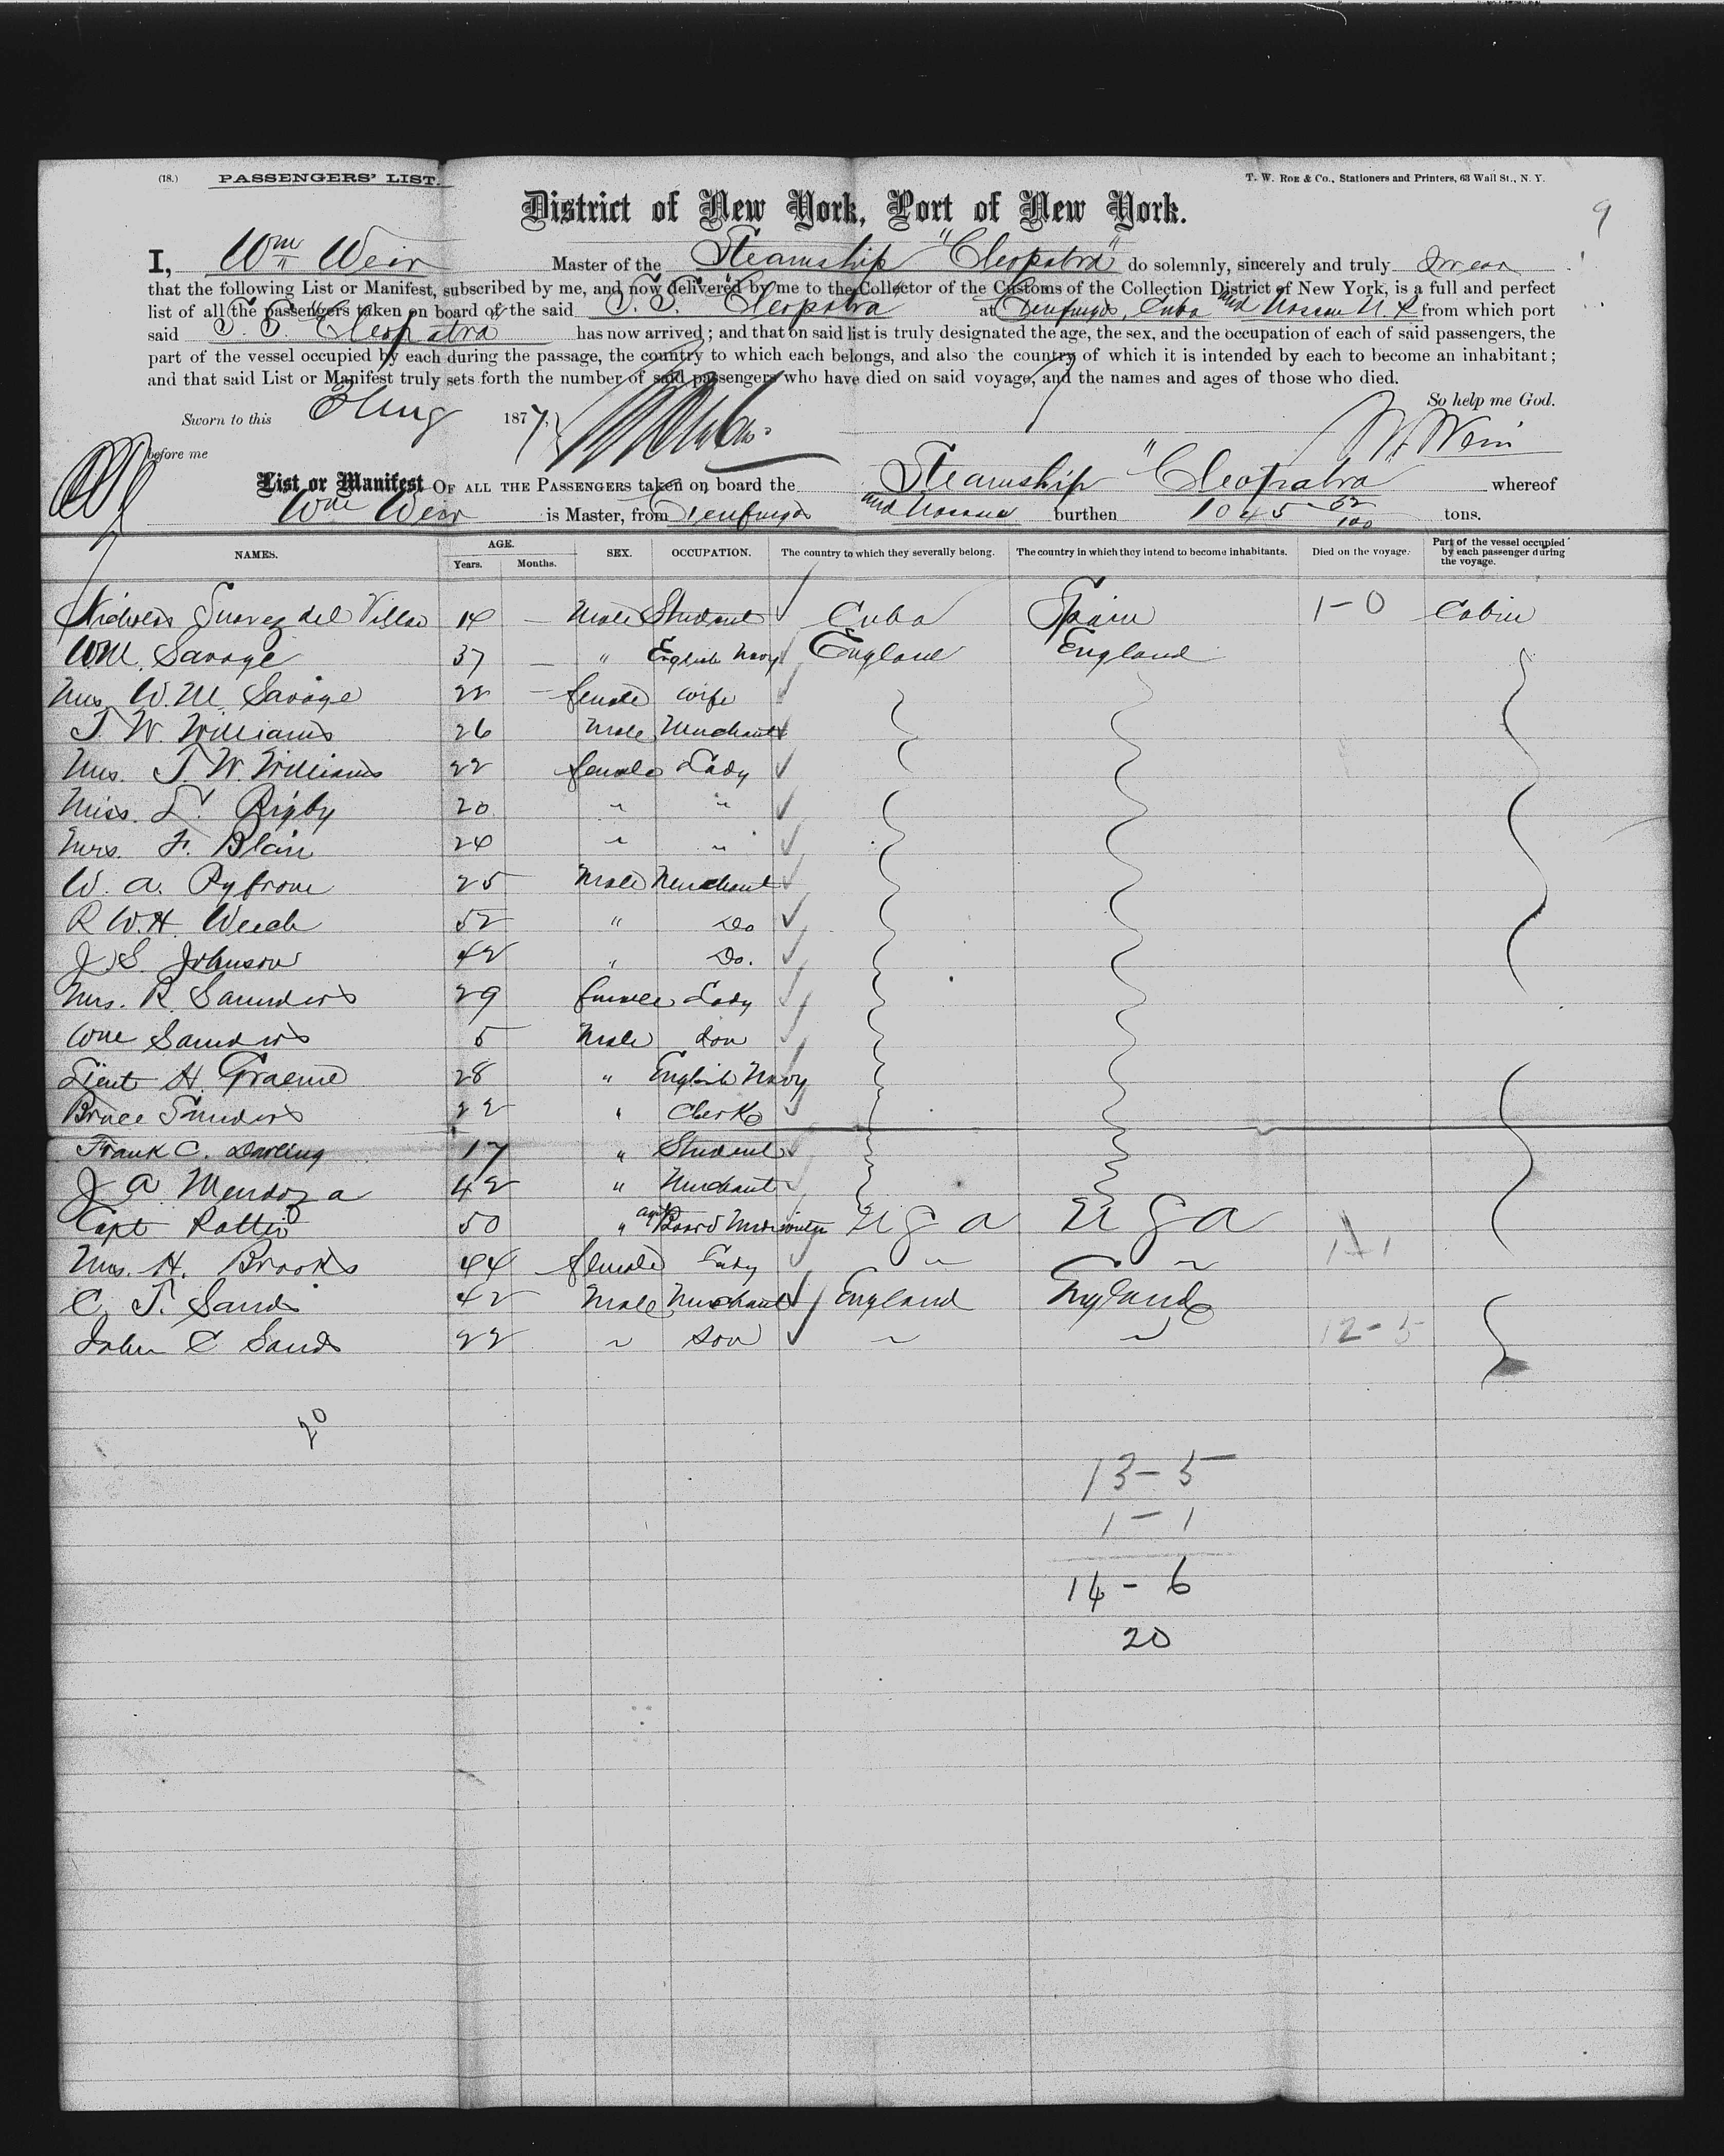 (18.) PASSENGERS' LIST. T. W. Roe & Co., Stationers and Printers, 63 Wall St., N. Y.
District of New York, Port of New York.
9
I, Wm Weir Master of the Steamship "Cleopatra" do solemnly, sincerely and truly swear
that the following List or Manifest, subscribed by me, and now delivered by me to the Collector of the Customs of the Collection District of New York, is a full and perfect
list of all the passengers taken on board of the said S. S. "Cleopatra" at Cienfuegos, Cuba and Nassau N. P. from which port
said S. S. "Cleopatra has now arrived; and that on said list is truly designated the age, the sex, and the occupation of each of said passengers, the
part of the vessel occupied by each during the passage, the country to which each belongs, and also the country of which it is intended by each to become an inhabitant;
and that said List or Manifest truly sets forth the number of said passengers who have died on said voyage, and the names and ages of those who died.
So help me God.
Sworn to this Aug 1877,
before me
W. Weir
List or Manifest OF ALL THE PASSENGERS taken on board the Steamship "Cleopatra" whereof
Wm Weir is Master, from Cienfuegos and Nassau burthen 1045 62/100 tons.
NAMES. AGE. Years. Months. SEX. OCCUPATION. The country to which they severally belong. The country in which they intend to become inhabitants. Died on the voyage. Part of the vessel occupied by each passenger during the voyage.
Nicholas Suarez del Villar 14 — Male Student Cuba Spain 1-0 Cabin
W.M. Savage 37 — " English Navy England England
Mrs W. M. Savage 22 — female wife
T. W. Williams 26 Male Merchant
Mrs. T. W. Williams 22 female Lady
Miss. L. Rigby 20 " "
Mrs. F. Blair 24 " "
W. A. 25 Male Merchant
R W. H. Weech 52 " Do
J. S. Johnson 42 " Do.
Mrs. R. Saunders 29 female Lady
Wm Saunders 5 Male Son
Lieut H. Graeme 28 " English Navy
Bruce Saunders 22 " Clerk
Frank C. Darling 17 " Student
J A Mendoza 42 " Merchant
Capt Rattio 50 " agt Board U S a U S a
Mrs. H. Brooks 44 female Lady " " 1-1
C. T. Sands 42 Male Merchant England England
John C Sands 22 " Son " " 12-5
20
13-5
1-1
14-6
20